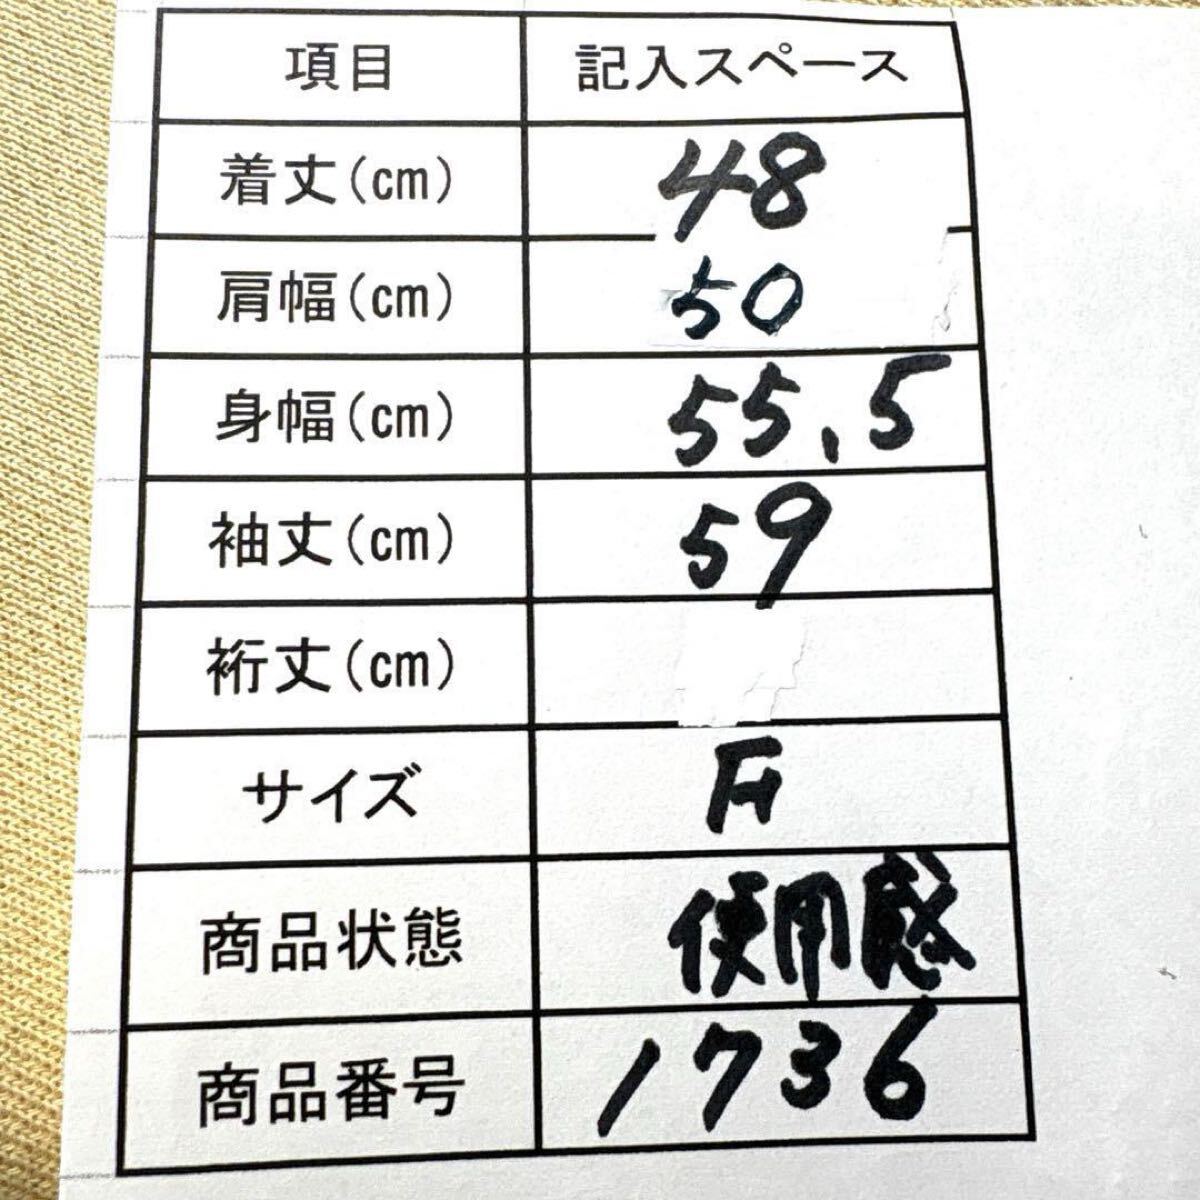 項目 記入スペース
着丈(cm) 48
肩幅(cm) 50
身幅(cm) 55.5
袖丈(cm) 59
裄丈(cm)
サイズ F
商品状態 使用感
商品番号 1736